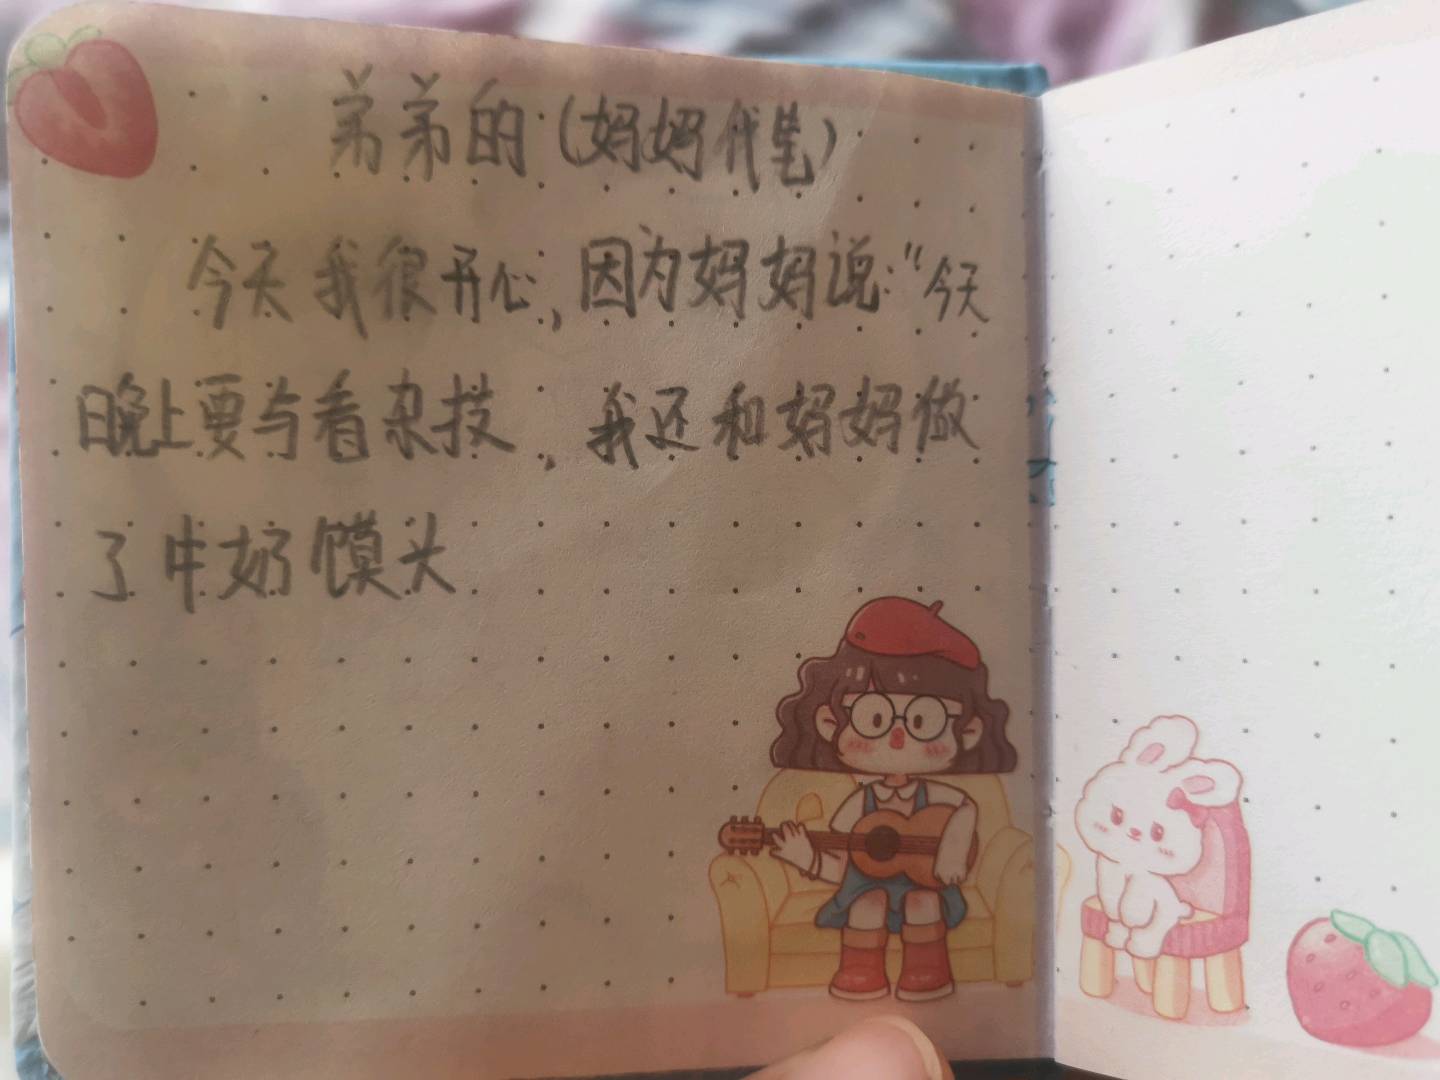 弟弟的(妈妈代笔)
今天我很开心,因为妈妈说:"今天
晚上要与看杂技,我还和妈妈做
了牛奶馍头